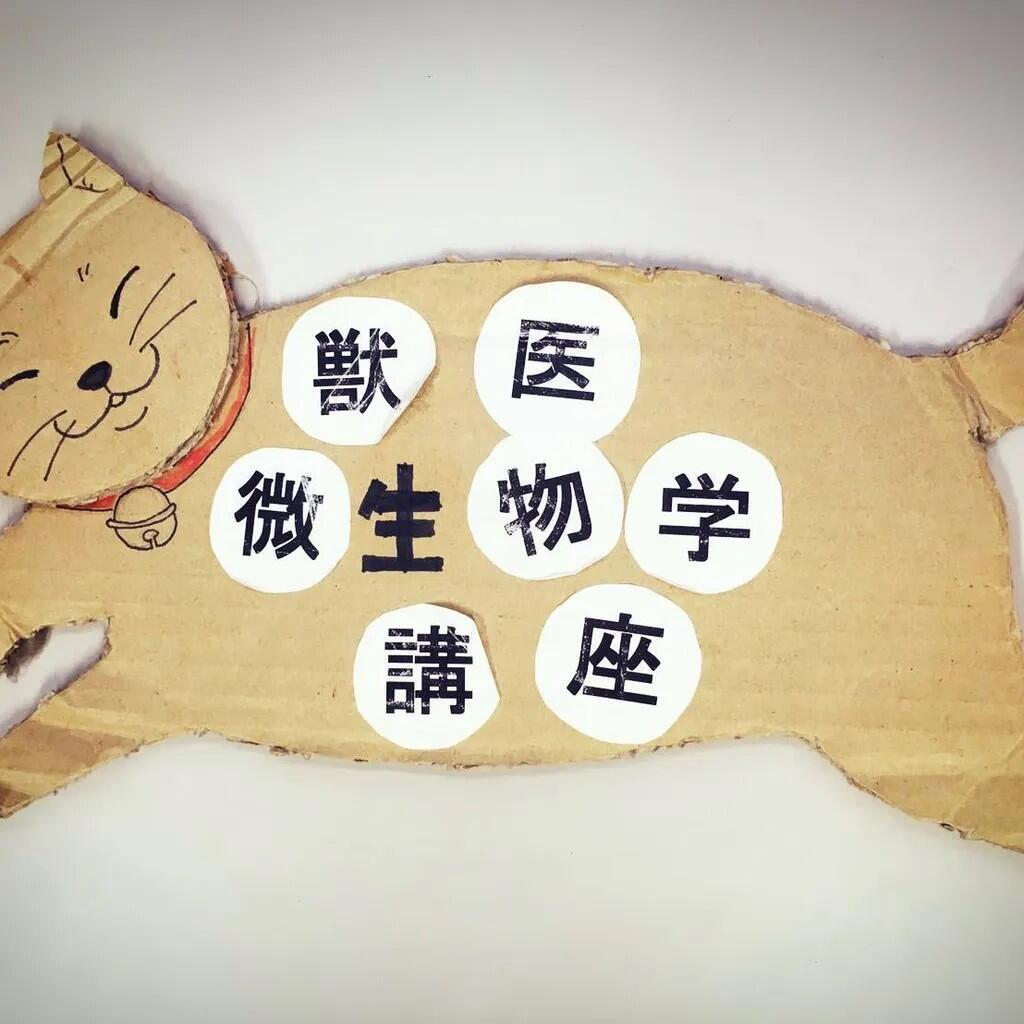 獣医
微生物学
講座